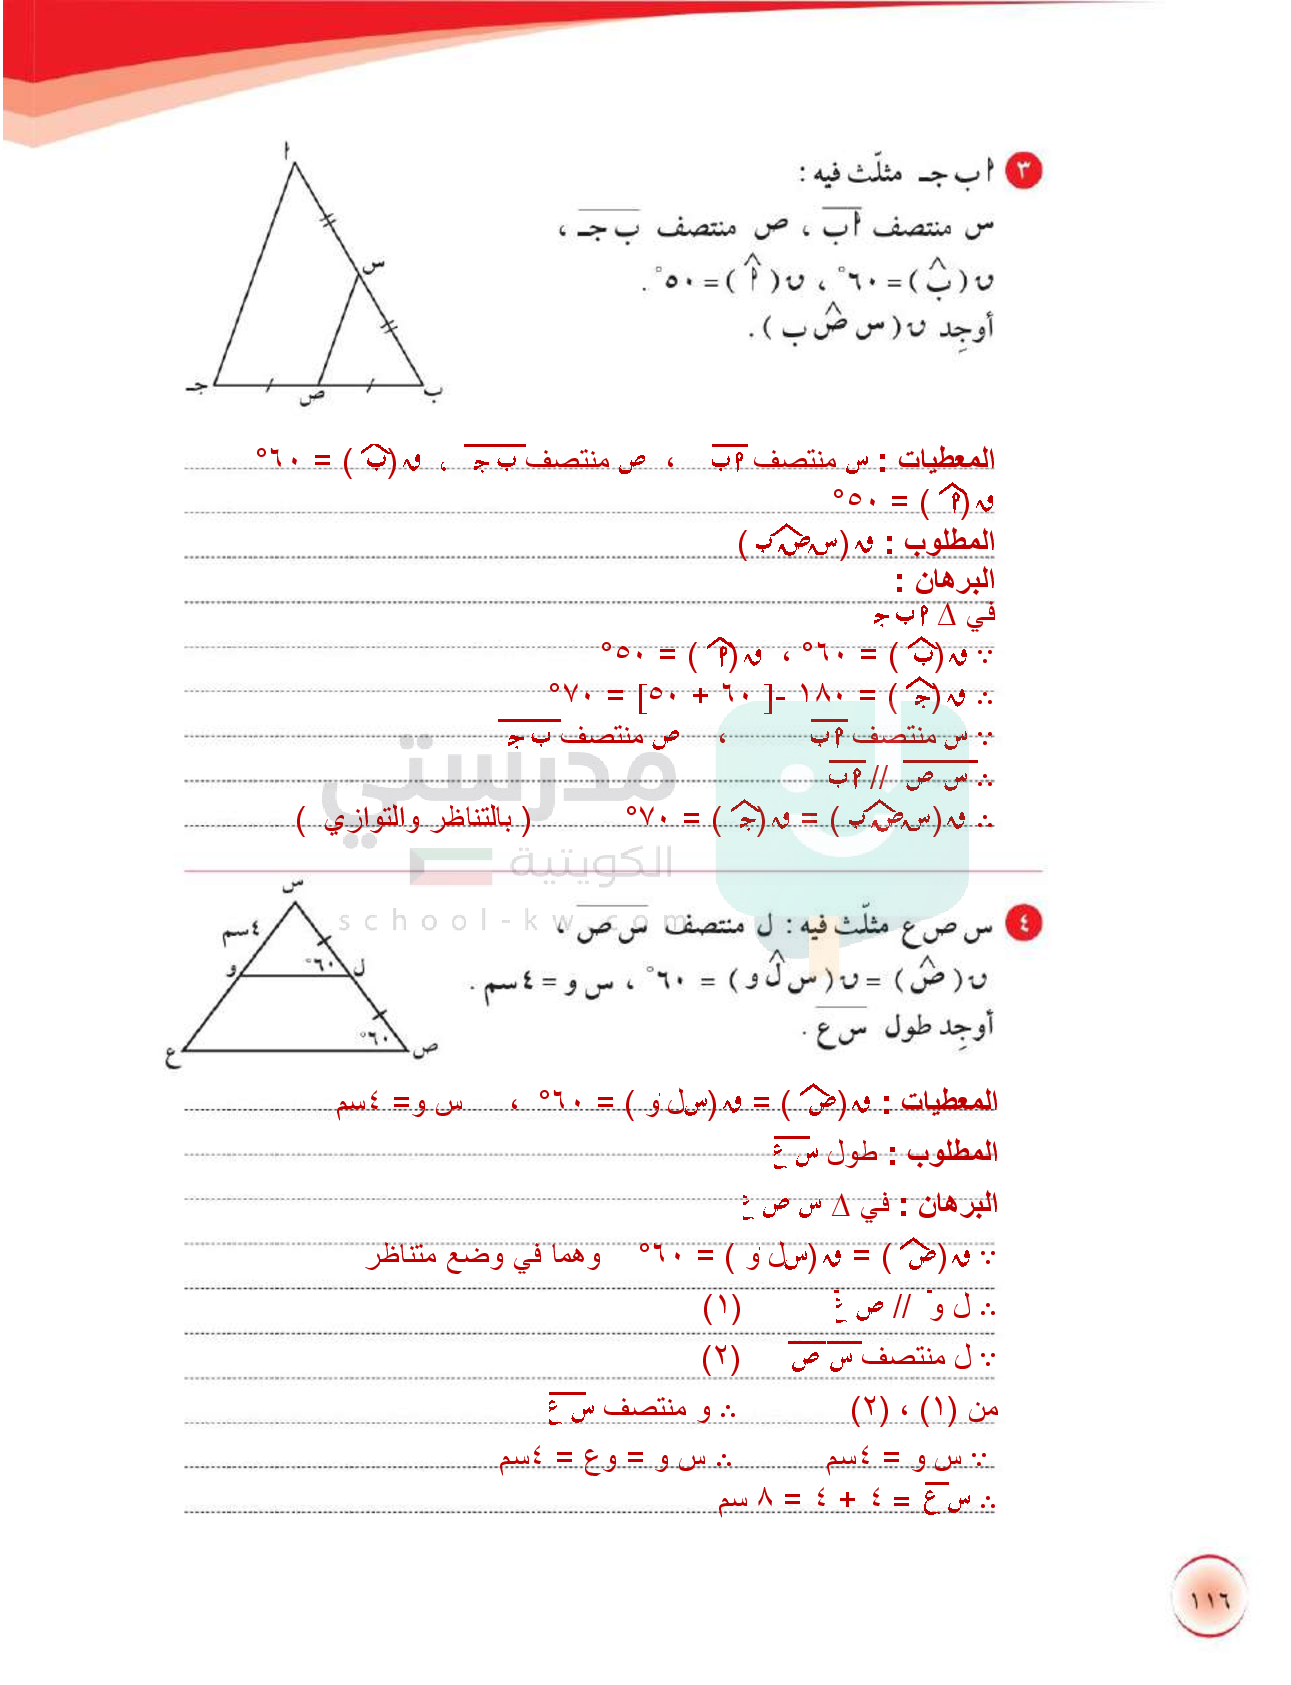 ٣ ا ب جـ مثلّث فيه :
س منتصف اب ، ص منتصف ب جـ ،
ن (ب) = ٦٠° ، ن (ا) = ٥٠° .
أوجِد ن (س ص ب) .
ا
س
ب
ص
جـ
المعطيات : س منتصف م ب ، ص منتصف ب ج ، ق (ب) = ٦٠°
ق (م) = ٥٠°
المطلوب : ق (س ص ب)
البرهان :
في Δ م ب ج
∵ ق (ب) = ٦٠° ، ق (م) = ٥٠°
∴ ق (ج) = ١٨٠ - [٦٠ + ٥٠] = ٧٠°
∵ س منتصف م ب ، ص منتصف ب ج
∴ س ص // م ب
∴ ق (س ص ب) = ق (ج) = ٧٠° ( بالتناظر والتوازي )
مدرستي
الكويتية
school-kw.com
٤ س ص ع مثلّث فيه : ل منتصف س ص ،
ن (ص) = ن (س ل و) = ٦٠° ، س و = ٤ سم .
أوجِد طول س ع .
س
٤ سم
و
٦٠°
ل
٦٠°
ص
ع
المعطيات : ق (ص) = ق (س ل و) = ٦٠° ، س و = ٤ سم
المطلوب : طول س ع
البرهان : في Δ س ص ع
∵ ق (ص) = ق (س ل و) = ٦٠° وهما في وضع متناظر
∴ ل و // ص ع (١)
∵ ل منتصف س ص (٢)
من (١) ، (٢) ∴ و منتصف س ع
∵ س و = ٤ سم ∴ س و = و ع = ٤ سم
∴ س ع = ٤ + ٤ = ٨ سم
١١٦